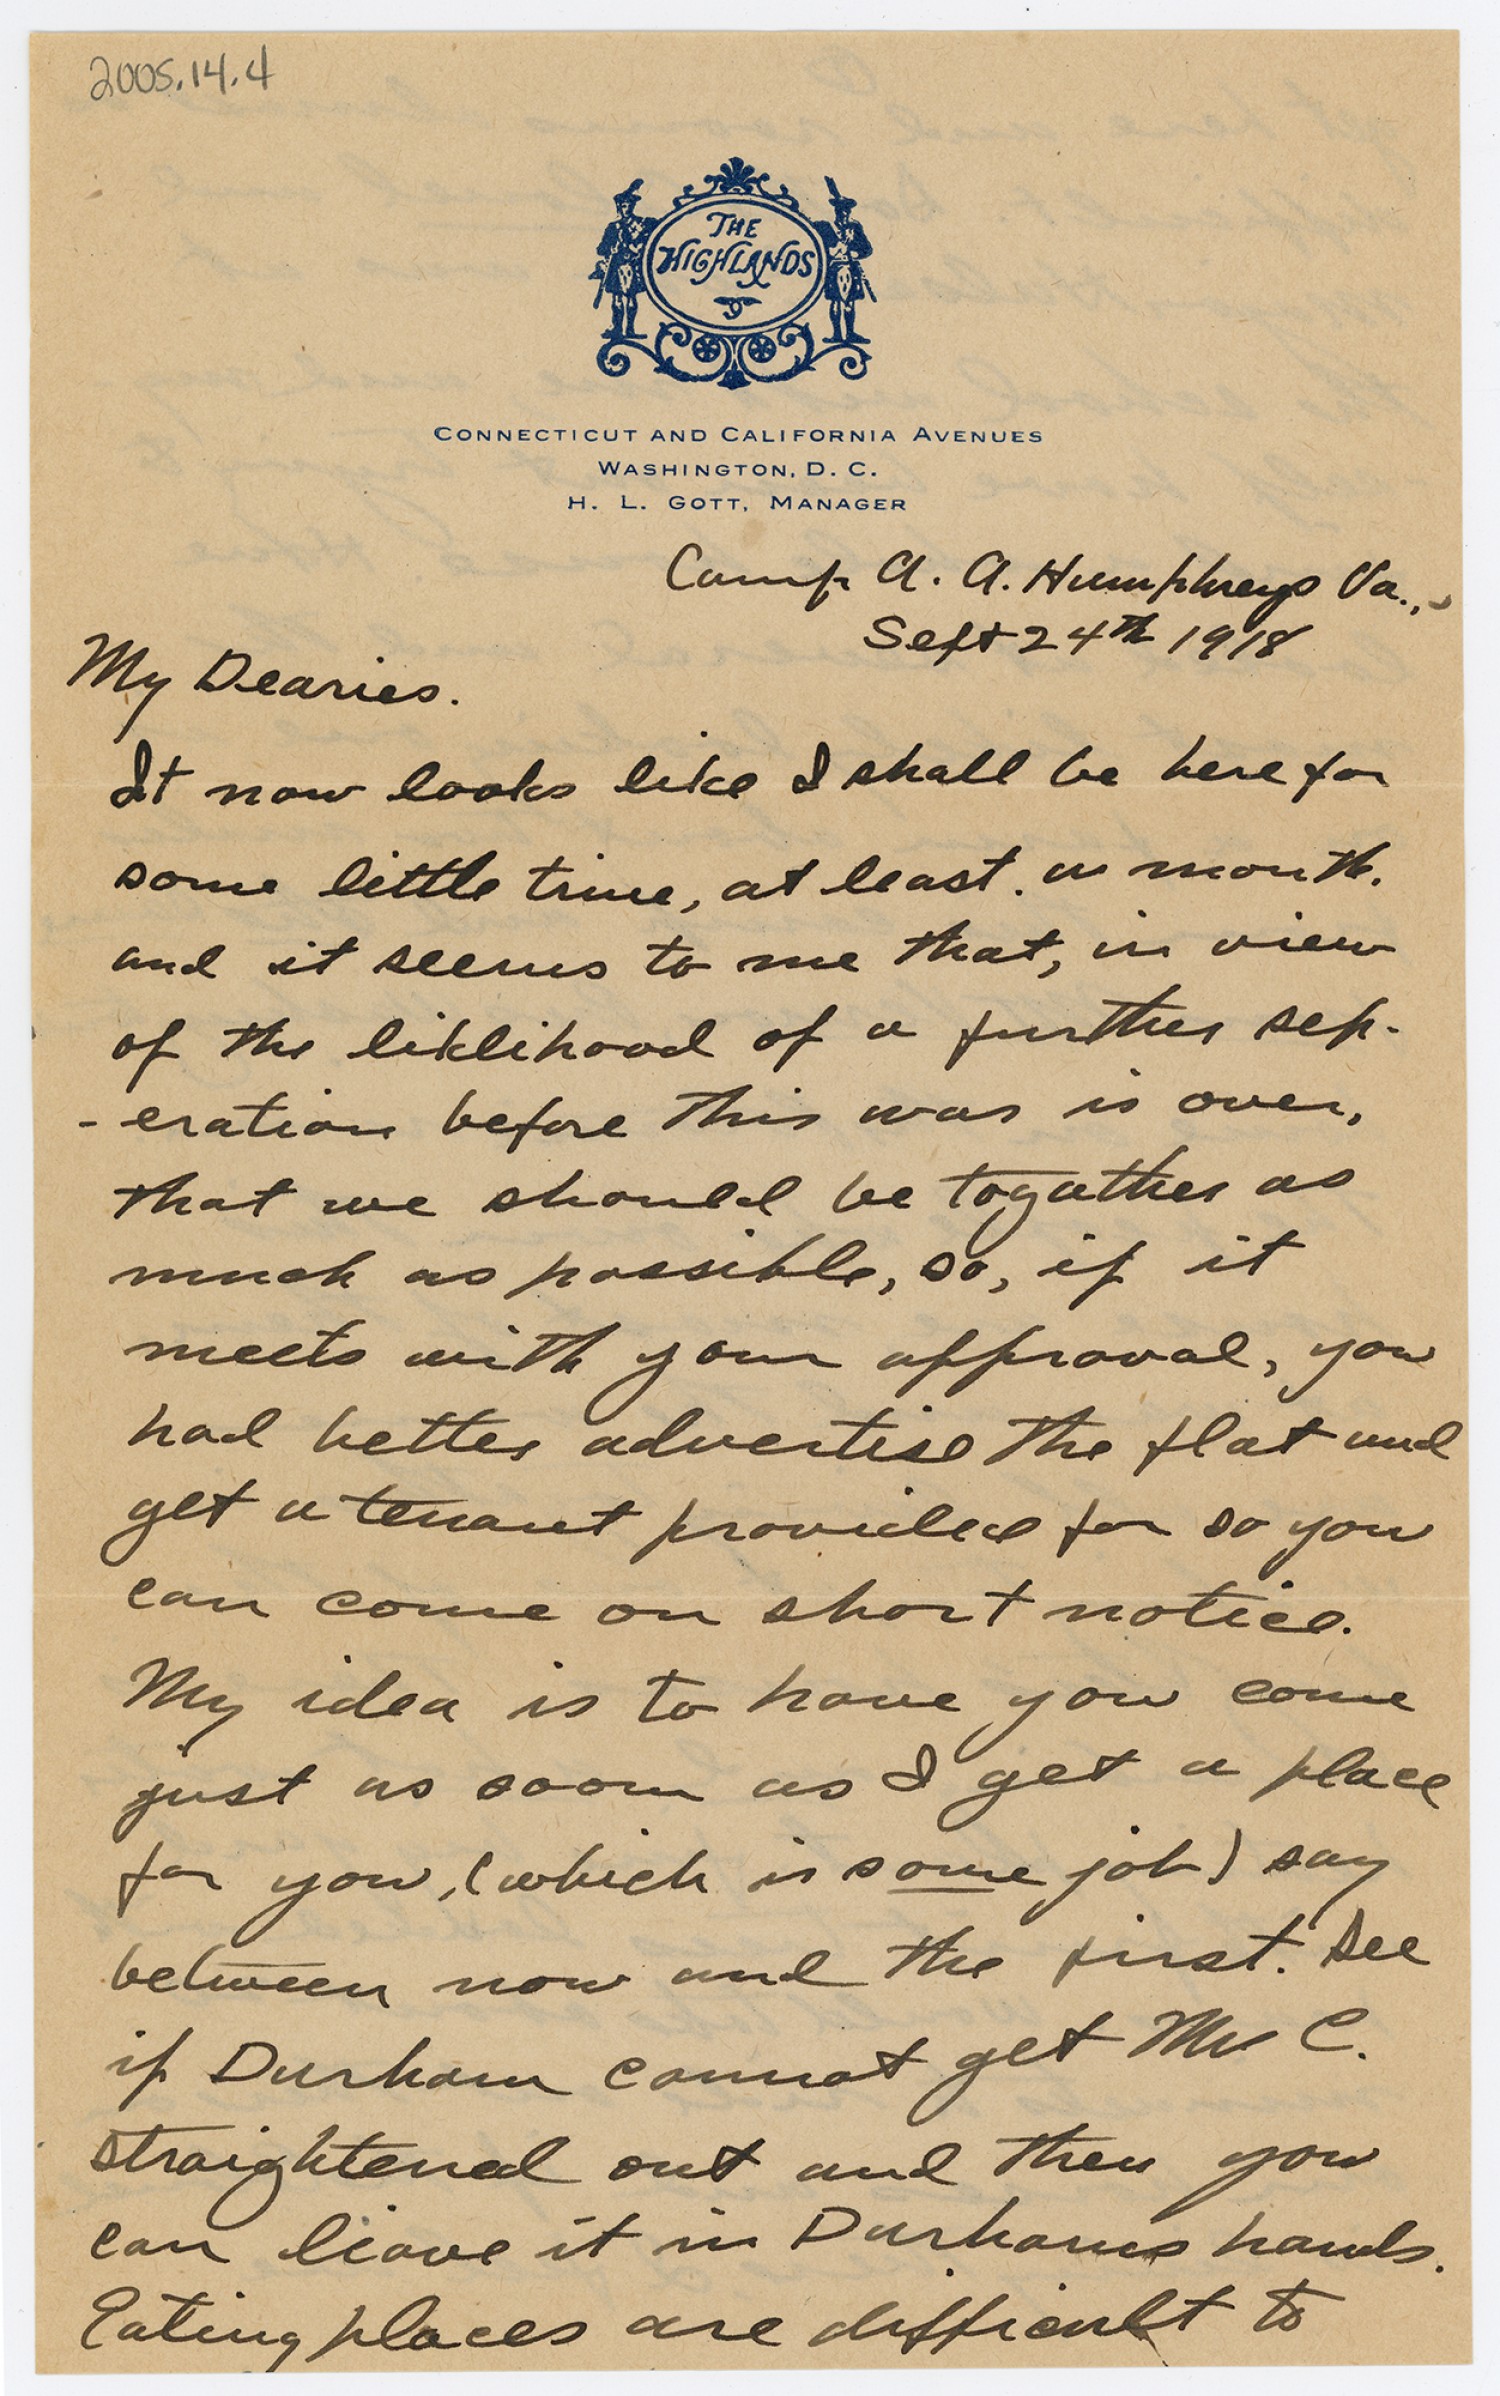 2005.14.4
THE
HIGHLANDS
CONNECTICUT AND CALIFORNIA AVENUES
WASHINGTON, D. C.
H. L. GOTT, MANAGER
Camp A. A. Humphreys Va.,
Sept 24th 1918
My Dearies.
It now looks like I shall be here for
some little time, at least. a month.
and it seems to me that, in view
of the liklihood of a further sep-
-eration before this war is over,
that we should be togather as
much as possible, so, if it
meets with your approval, you
had better advertise the flat and
get a tenant provided for so you
can come on short notice.
My idea is to have you come
just as soon as I get a place
for you, (which is some job) say
between now and the first. See
if Durham cannot get Mr C.
straightened out and then you
can leave it in Durhams hands.
Eating places are difficult to